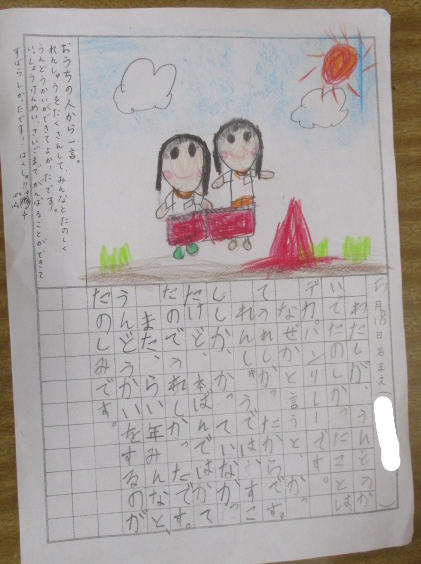 おうちの人から一言。
れんしゅうをたくさんして、みんなとたのしく
うんどうかいができてよかったです。
いっしょうけんめい、さいごまでがんばることができて
すばらしかったです。はくしゅ!!
5月18日 なまえ( )
わたしが、うんどうか
いでたのしかったことは、
デカパンリレーです。
なぜかと言うと、か
てうれしかったからです。
れんしゅうではすこ
ししか、かてなかっ
たけど、本ばんではかて
たのでうれしかったです。
また、らい年みんなと、
うんどうかいをするのが
たのしみです。